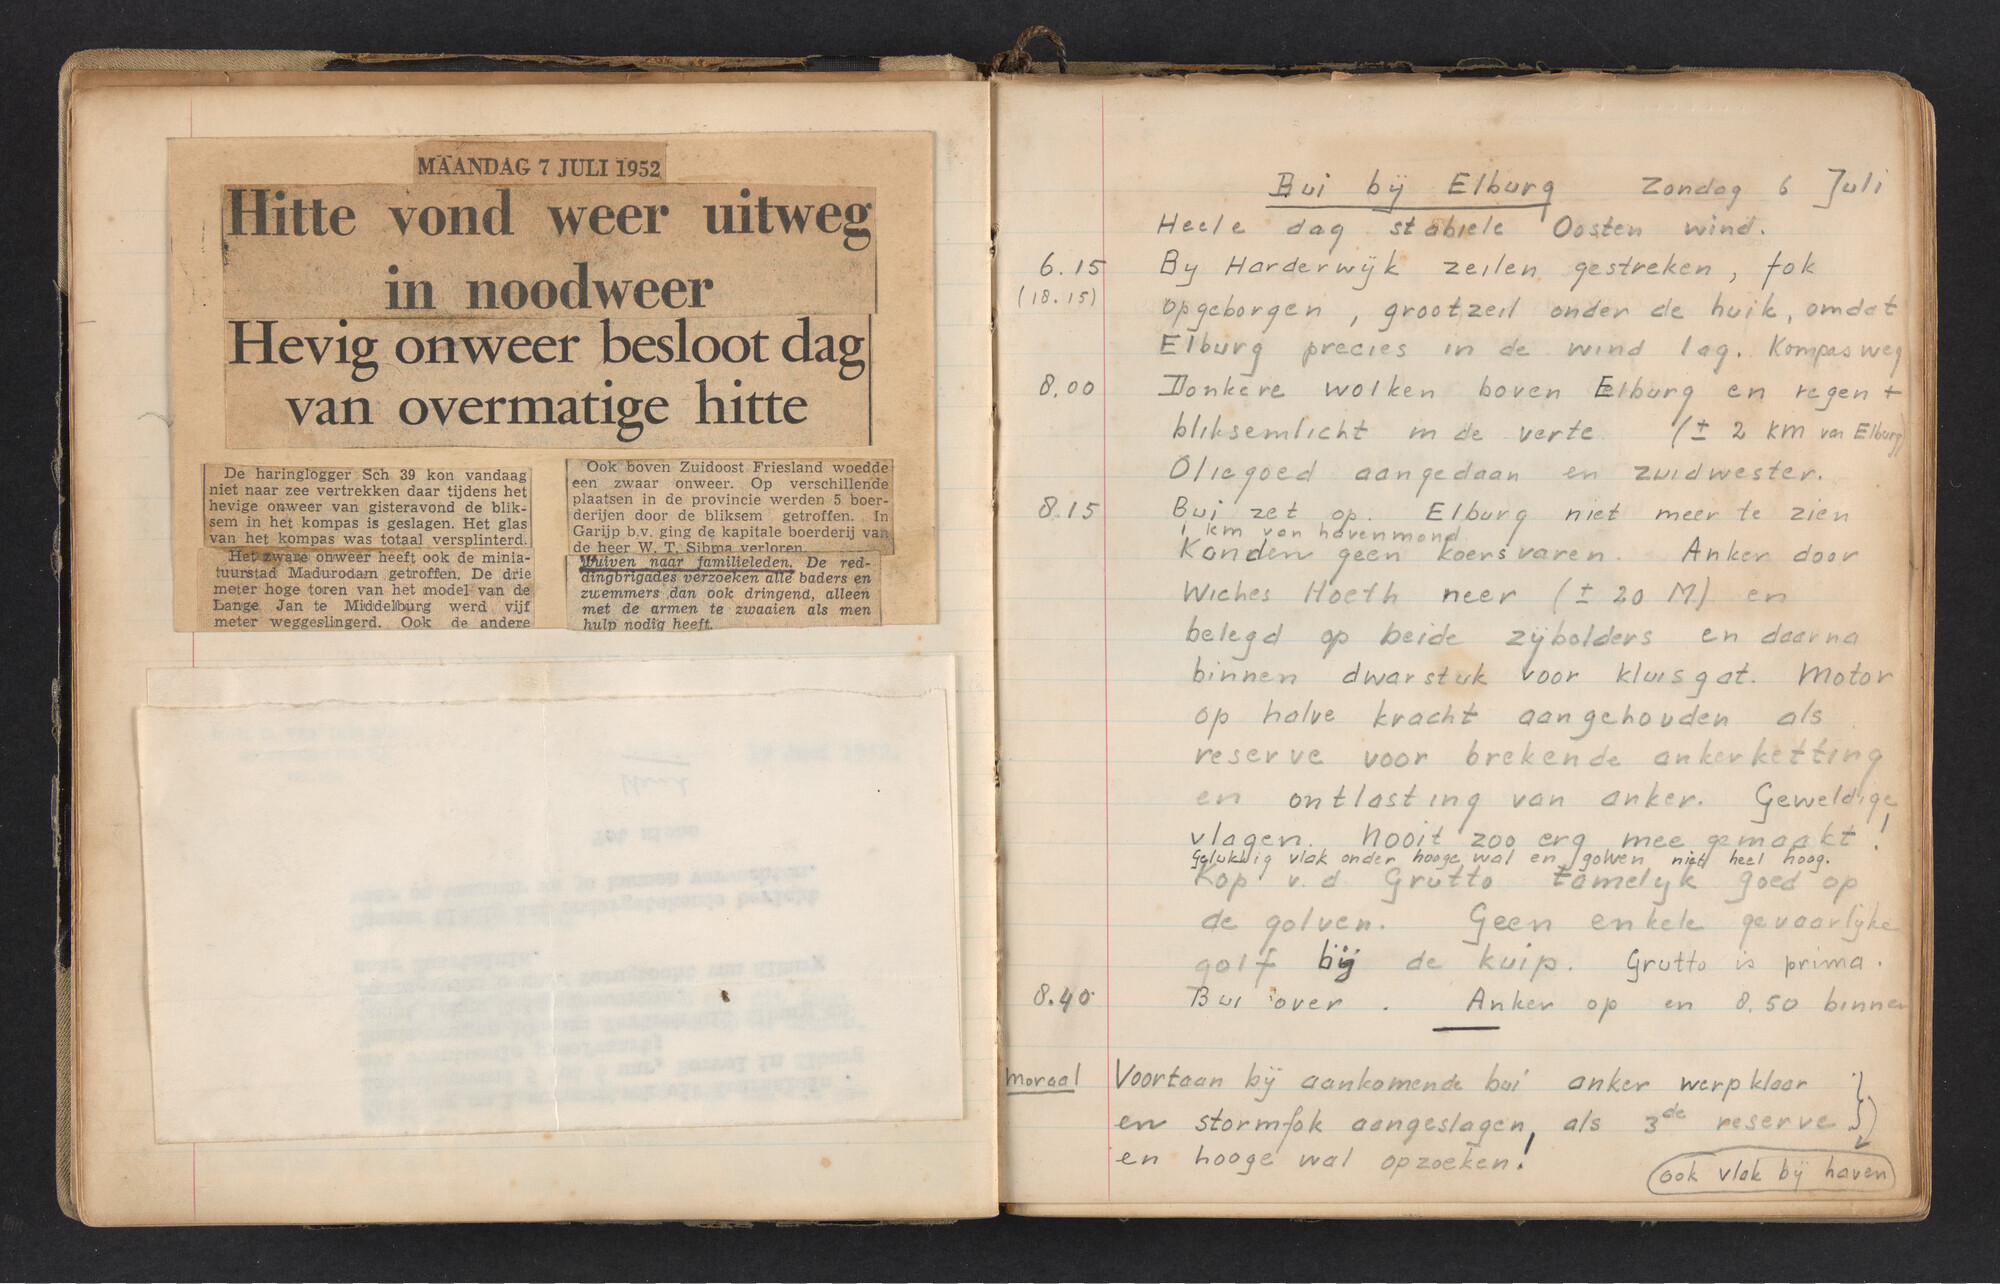 MAANDAG 7 JULI 1952
Hitte vond weer uitweg
in noodweer
Hevig onweer besloot dag
van overmatige hitte
De haringlogger Sch 39 kon vandaag
niet naar zee vertrekken daar tijdens het
hevige onweer van gisteravond de blik-
sem in het kompas is geslagen. Het glas
van het kompas was totaal versplinterd.
Het zware onweer heeft ook de minia-
tuurstad Madurodam getroffen. De drie
meter hoge toren van het model van de
Lange Jan te Middelburg werd vijf
meter weggeslingerd. Ook de andere
Ook boven Zuidoost Friesland woedde
een zwaar onweer. Op verschillende
plaatsen in de provincie werden 5 boer-
derijen door de bliksem getroffen. In
Garijp b.v. ging de kapitale boerderij van
de heer W. T. Sibma verloren.
Wuiven naar familieleden. De red-
dingbrigades verzoeken alle baders en
zwemmers dan ook dringend, alleen
met de armen te zwaaien als men
hulp nodig heeft.
Bui bij Elburg Zondag 6 Juli
Heele dag stabiele Oosten wind.
6.15 By Harderwijk zeilen gestreken, fok
(18.15) opgeborgen, grootzeil onder de huik, omdat
Elburg precies in de wind lag. Kompas weg
8.00 Donkere wolken boven Elburg en regen +
bliksemlicht in de verte (± 2 KM van Elburg)
Oliegoed aangedaan en zuidwester.
8.15 Bui zet op. Elburg niet meer te zien
1 km van havenmond
Konden geen koers varen. Anker door
Wiches Hoeth neer (± 20 M) en
belegd op beide zijbolders en daarna
binnen dwarstuk voor kluisgat. Motor
op halve kracht aangehouden als
reserve voor brekende ankerketting
en ontlasting van anker. Geweldige
vlagen. Nooit zoo erg mee gemaakt!
Gelukkig vlak onder hooge wal en golven niet heel hoog.
Kop v.d. Grutto tamelijk goed op
de golven. Geen enkele gevaarlijke
golf bij de kuip. Grutto is prima.
8.40 Bui over. Anker op en 8.50 binnen
Moraal Voortaan bij aankomende bui anker werpklaar
en stormfok aangeslagen, als 3de reserve
en hooge wal opzoeken!
ook vlak bij haven